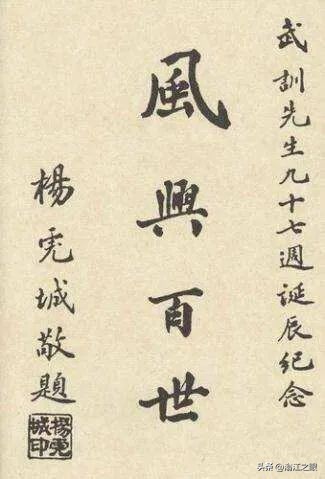 武訓先生九十七週誕辰紀念
風興百世
楊虎城敬題
楊虎城印
头条 @浙江之眼